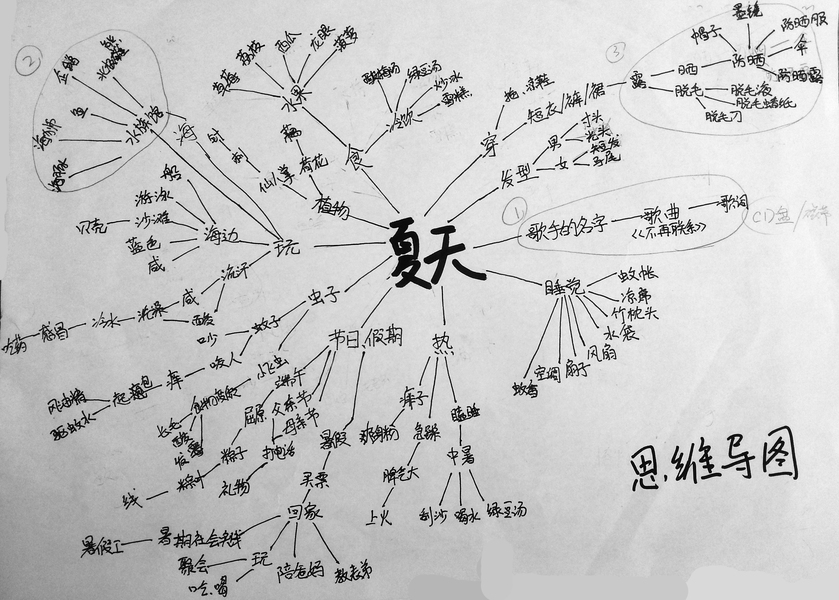 夏天
思维导图
②
企鹅
鱼
海狮
水族馆
海
时
刺
仙人掌
藕
荷花
植物
食
水果
草莓
荔枝
西瓜
龙眼
菠萝
冷饮
酸梅汤
绿豆汤
炒冰
雪糕
穿
拖 凉鞋
短衣/裤/裙
发型
男
寸头
光头
女
短发
马尾
③
露
晒
防晒
帽子
墨镜
防晒服
伞
防晒霜
脱毛
脱毛液
脱毛蜡纸
脱毛刀
①
歌手的名字
歌曲
《不再联系》
歌词
CD盒/碎
玩
海边
船
游泳
沙滩
贝壳
蓝色
咸
流汗
咸
酸
洗澡
冷水
感冒
吃药
虫子
蚊子
吵
咬人
痒
起包
风油精
驱蚊水
小飞虫
食物腐败
长毛
酸
发霉
节日 假期
端午
屈原
粽子
粽叶
线
父亲节
母亲节
打电话
礼物
暑假
买票
回家
暑期社会实践
暑假工
玩
聚会
吃、喝
陪爸妈
教表弟
热
痱子
爽身粉
急躁
脾气大
上火
瞌睡
中暑
刮沙
喝水
绿豆汤
睡觉
蚊帐
凉席
竹枕头
水袋
风扇
扇子
空调
蚊香